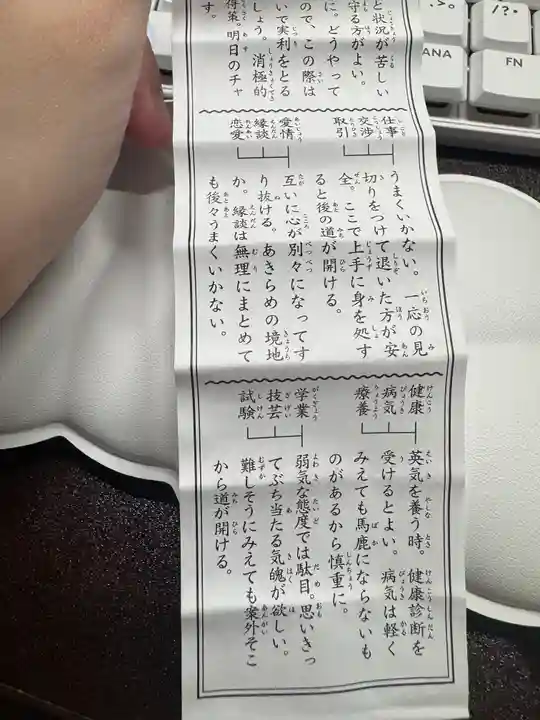 と状況が苦しい
守る方がよい。
に。どうやって
ので、この際は
いで実利をとる
しょう。消極的
得策。明日のチャ
す。
仕事
交渉
取引
うまくいかない。一応の見
切りをつけて退いた方が安
全。ここで上手に身を処す
ると後の道が開ける。
愛情
縁談
恋愛
互いに心が別々になってす
り抜ける。あきらめの境地
か。縁談は無理にまとめて
も後々うまくいかない。
健康
病気
療養
英気を養う時。健康診断を
受けるとよい。病気は軽く
みえても馬鹿にならないも
のがあるから慎重に。
学業
技芸
試験
弱気な態度では駄目。思いきっ
てぶち当たる気魄が欲しい。
難しそうにみえても案外そこ
から道が開ける。
>。
?・
/
ANA
FN